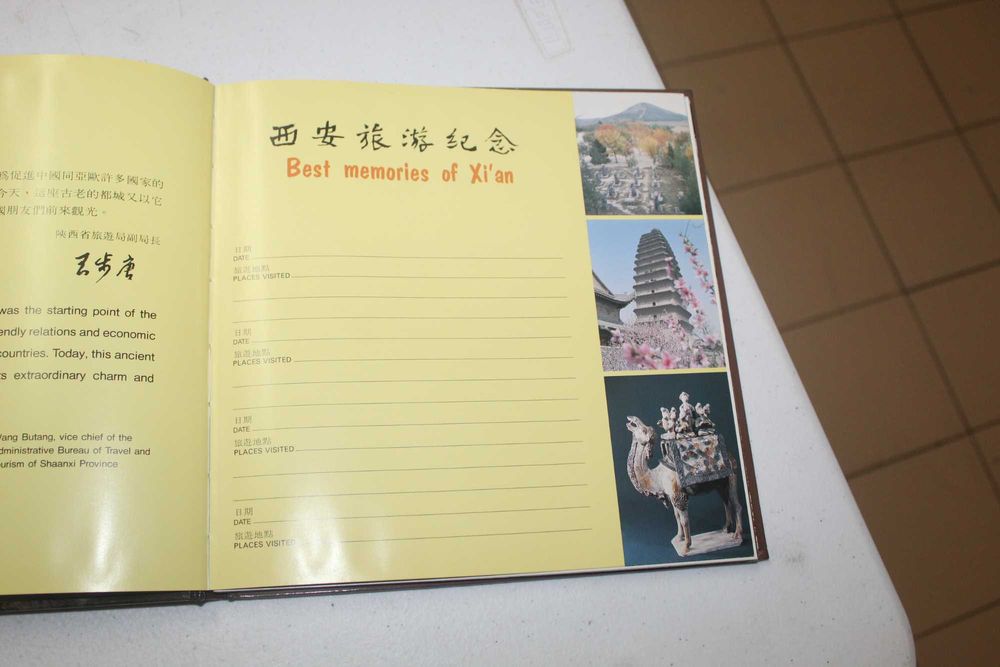 為促進中國同亞歐許多國家的
今天，這座古老的都城又以它
國朋友們前來觀光。
陝西省旅遊局副局長
王步唐
was the starting point of the
endly relations and economic
countries. Today, this ancient
ts extraordinary charm and
Wang Butang, vice chief of the
dministrative Bureau of Travel and
urism of Shaanxi Province
西安旅游纪念
Best memories of Xi'an
日期
DATE
旅遊地點
PLACES VISITED
日期
DATE
旅遊地點
PLACES VISITED
日期
DATE
旅遊地點
PLACES VISITED
日期
DATE
旅遊地點
PLACES VISITED